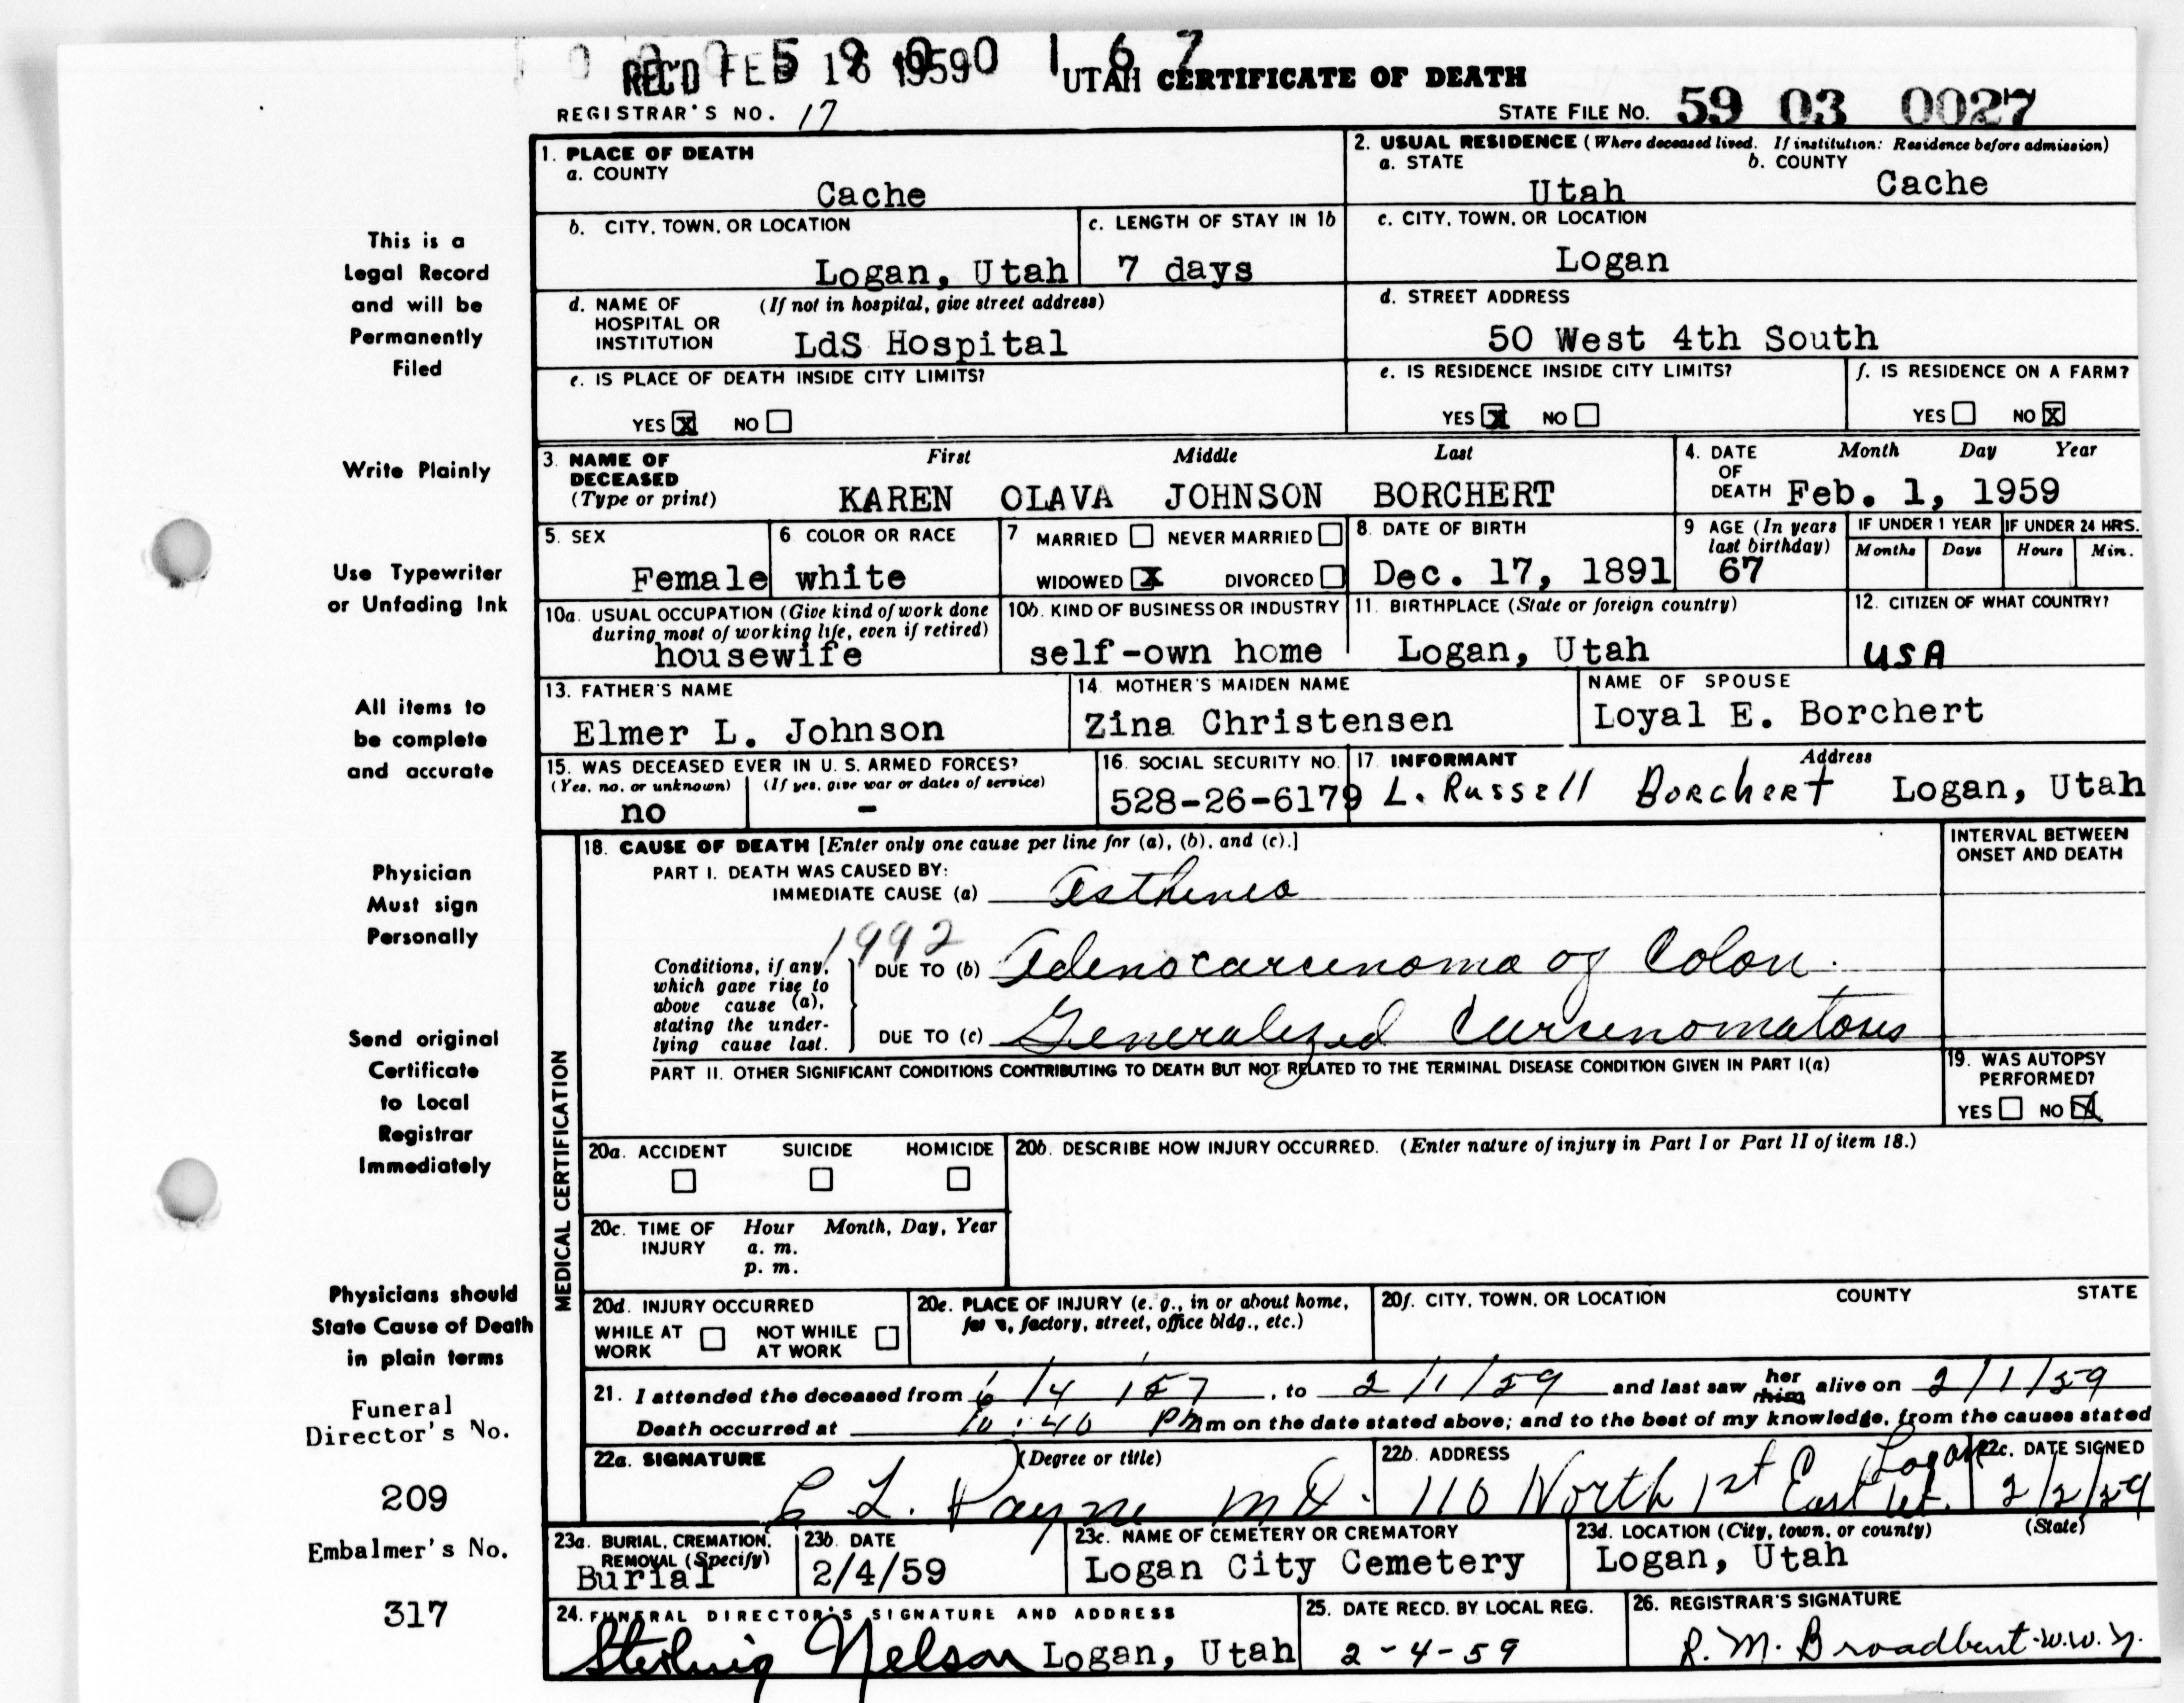 REC'D FEB 16 1959
0 0 0 5 9 0 0 0 1 6 7
UTAH CERTIFICATE OF DEATH
REGISTRAR'S NO. 17
STATE FILE No. 59 03 0027
1. PLACE OF DEATH
a. COUNTY
Cache
2. USUAL RESIDENCE (Where deceased lived. If institution: Residence before admission)
a. STATE b. COUNTY
Utah Cache
b. CITY, TOWN, OR LOCATION
Logan, Utah
c. LENGTH OF STAY IN 1b
7 days
c. CITY, TOWN, OR LOCATION
Logan
d. NAME OF (If not in hospital, give street address)
HOSPITAL OR
INSTITUTION LdS Hospital
d. STREET ADDRESS
50 West 4th South
e. IS PLACE OF DEATH INSIDE CITY LIMITS?
YES X NO
e. IS RESIDENCE INSIDE CITY LIMITS?
YES X NO
f. IS RESIDENCE ON A FARM?
YES NO X
3. NAME OF DECEASED (Type or print)
First Middle Last
KAREN OLAVA JOHNSON BORCHERT
4. DATE OF DEATH Month Day Year
Feb. 1, 1959
5. SEX
Female
6 COLOR OR RACE
white
7 MARRIED NEVER MARRIED
WIDOWED X DIVORCED
8. DATE OF BIRTH
Dec. 17, 1891
9 AGE (In years last birthday)
67
IF UNDER 1 YEAR
Months Days
IF UNDER 24 HRS.
Hours Min.
10a. USUAL OCCUPATION (Give kind of work done
during most of working life, even if retired)
housewife
10b. KIND OF BUSINESS OR INDUSTRY
self-own home
11. BIRTHPLACE (State or foreign country)
Logan, Utah
12. CITIZEN OF WHAT COUNTRY?
USA
13. FATHER'S NAME
Elmer L. Johnson
14. MOTHER'S MAIDEN NAME
Zina Christensen
NAME OF SPOUSE
Loyal E. Borchert
15. WAS DECEASED EVER IN U. S. ARMED FORCES?
(Yes, no, or unknown) (If yes, give war or dates of service)
no -
16. SOCIAL SECURITY NO.
528-26-6179
17. INFORMANT Address
L. Russell Borchert Logan, Utah
MEDICAL CERTIFICATION
18. CAUSE OF DEATH [Enter only one cause per line for (a), (b), and (c).]
INTERVAL BETWEEN
ONSET AND DEATH
PART I. DEATH WAS CAUSED BY:
IMMEDIATE CAUSE (a) Asthenia
1992
Conditions, if any,
which gave rise to
above cause (a),
stating the under-
lying cause last.
DUE TO (b) Adenocarcinoma of Colon.
DUE TO (c) Generalized Carcinomatosis
PART II. OTHER SIGNIFICANT CONDITIONS CONTRIBUTING TO DEATH BUT NOT RELATED TO THE TERMINAL DISEASE CONDITION GIVEN IN PART I(a)
19. WAS AUTOPSY
PERFORMED?
YES NO X
20a. ACCIDENT SUICIDE HOMICIDE
20b. DESCRIBE HOW INJURY OCCURRED. (Enter nature of injury in Part I or Part II of item 18.)
20c. TIME OF INJURY Hour Month, Day, Year
a. m.
p. m.
20d. INJURY OCCURRED
WHILE AT WORK NOT WHILE AT WORK
20e. PLACE OF INJURY (e. g., in or about home,
farm, factory, street, office bldg., etc.)
20f. CITY, TOWN, OR LOCATION COUNTY STATE
21. I attended the deceased from 6/4/57, to 2/1/59 and last saw her him alive on 2/1/59
Death occurred at 10:40 Pm m on the date stated above; and to the best of my knowledge, from the causes stated
22a. SIGNATURE (Degree or title)
C L. Payne MD.
22b. ADDRESS
110 North 1st East Logan Ut.
22c. DATE SIGNED
2/2/59
23a. BURIAL, CREMATION,
REMOVAL (Specify)
Burial
23b. DATE
2/4/59
23c. NAME OF CEMETERY OR CREMATORY
Logan City Cemetery
23d. LOCATION (City, town, or county) (State)
Logan, Utah
24. FUNERAL DIRECTOR'S SIGNATURE AND ADDRESS
Sterling Nelson Logan, Utah
25. DATE RECD. BY LOCAL REG.
2-4-59
26. REGISTRAR'S SIGNATURE
R. M. Broadbent
This is a
Legal Record
and will be
Permanently
Filed
Write Plainly
Use Typewriter
or Unfading Ink
All items to
be complete
and accurate
Physician
Must sign
Personally
Send original
Certificate
to Local
Registrar
Immediately
Physicians should
State Cause of Death
in plain terms
Funeral
Director's No.
209
Embalmer's No.
317